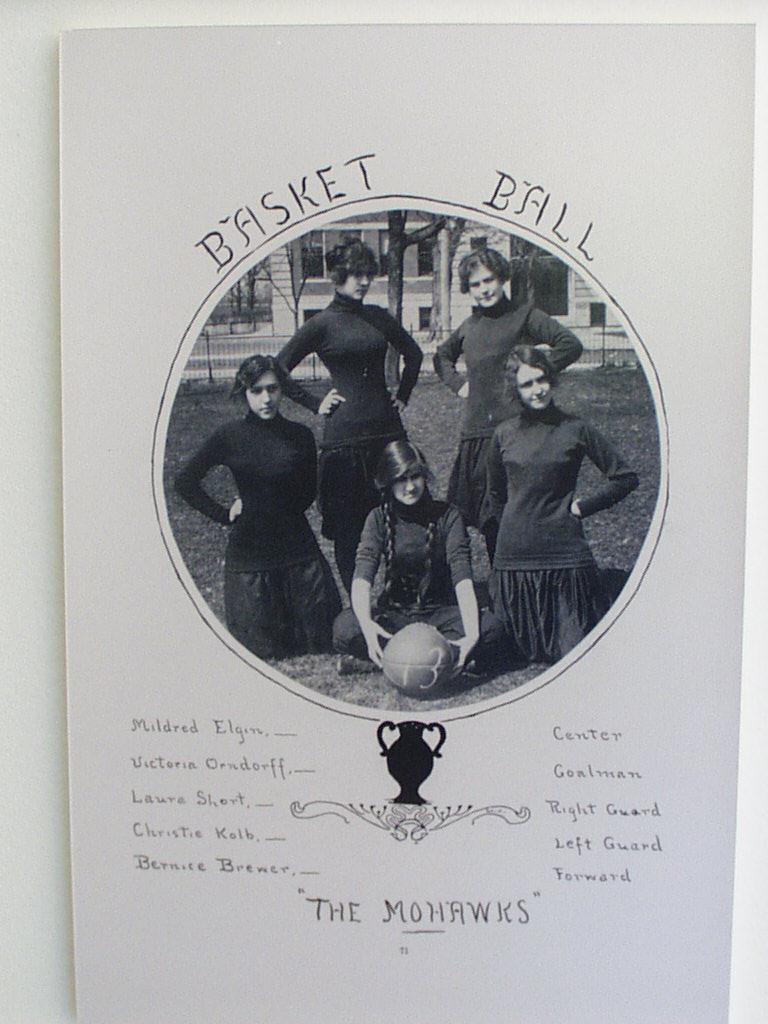 BASKET BALL
13
Mildred Elgin, — Center
Victoria Orndorff, — Goalman
Laura Short, — Right Guard
Christie Kolb, — Left Guard
Bernice Brewer, — Forward
"THE MOHAWKS"